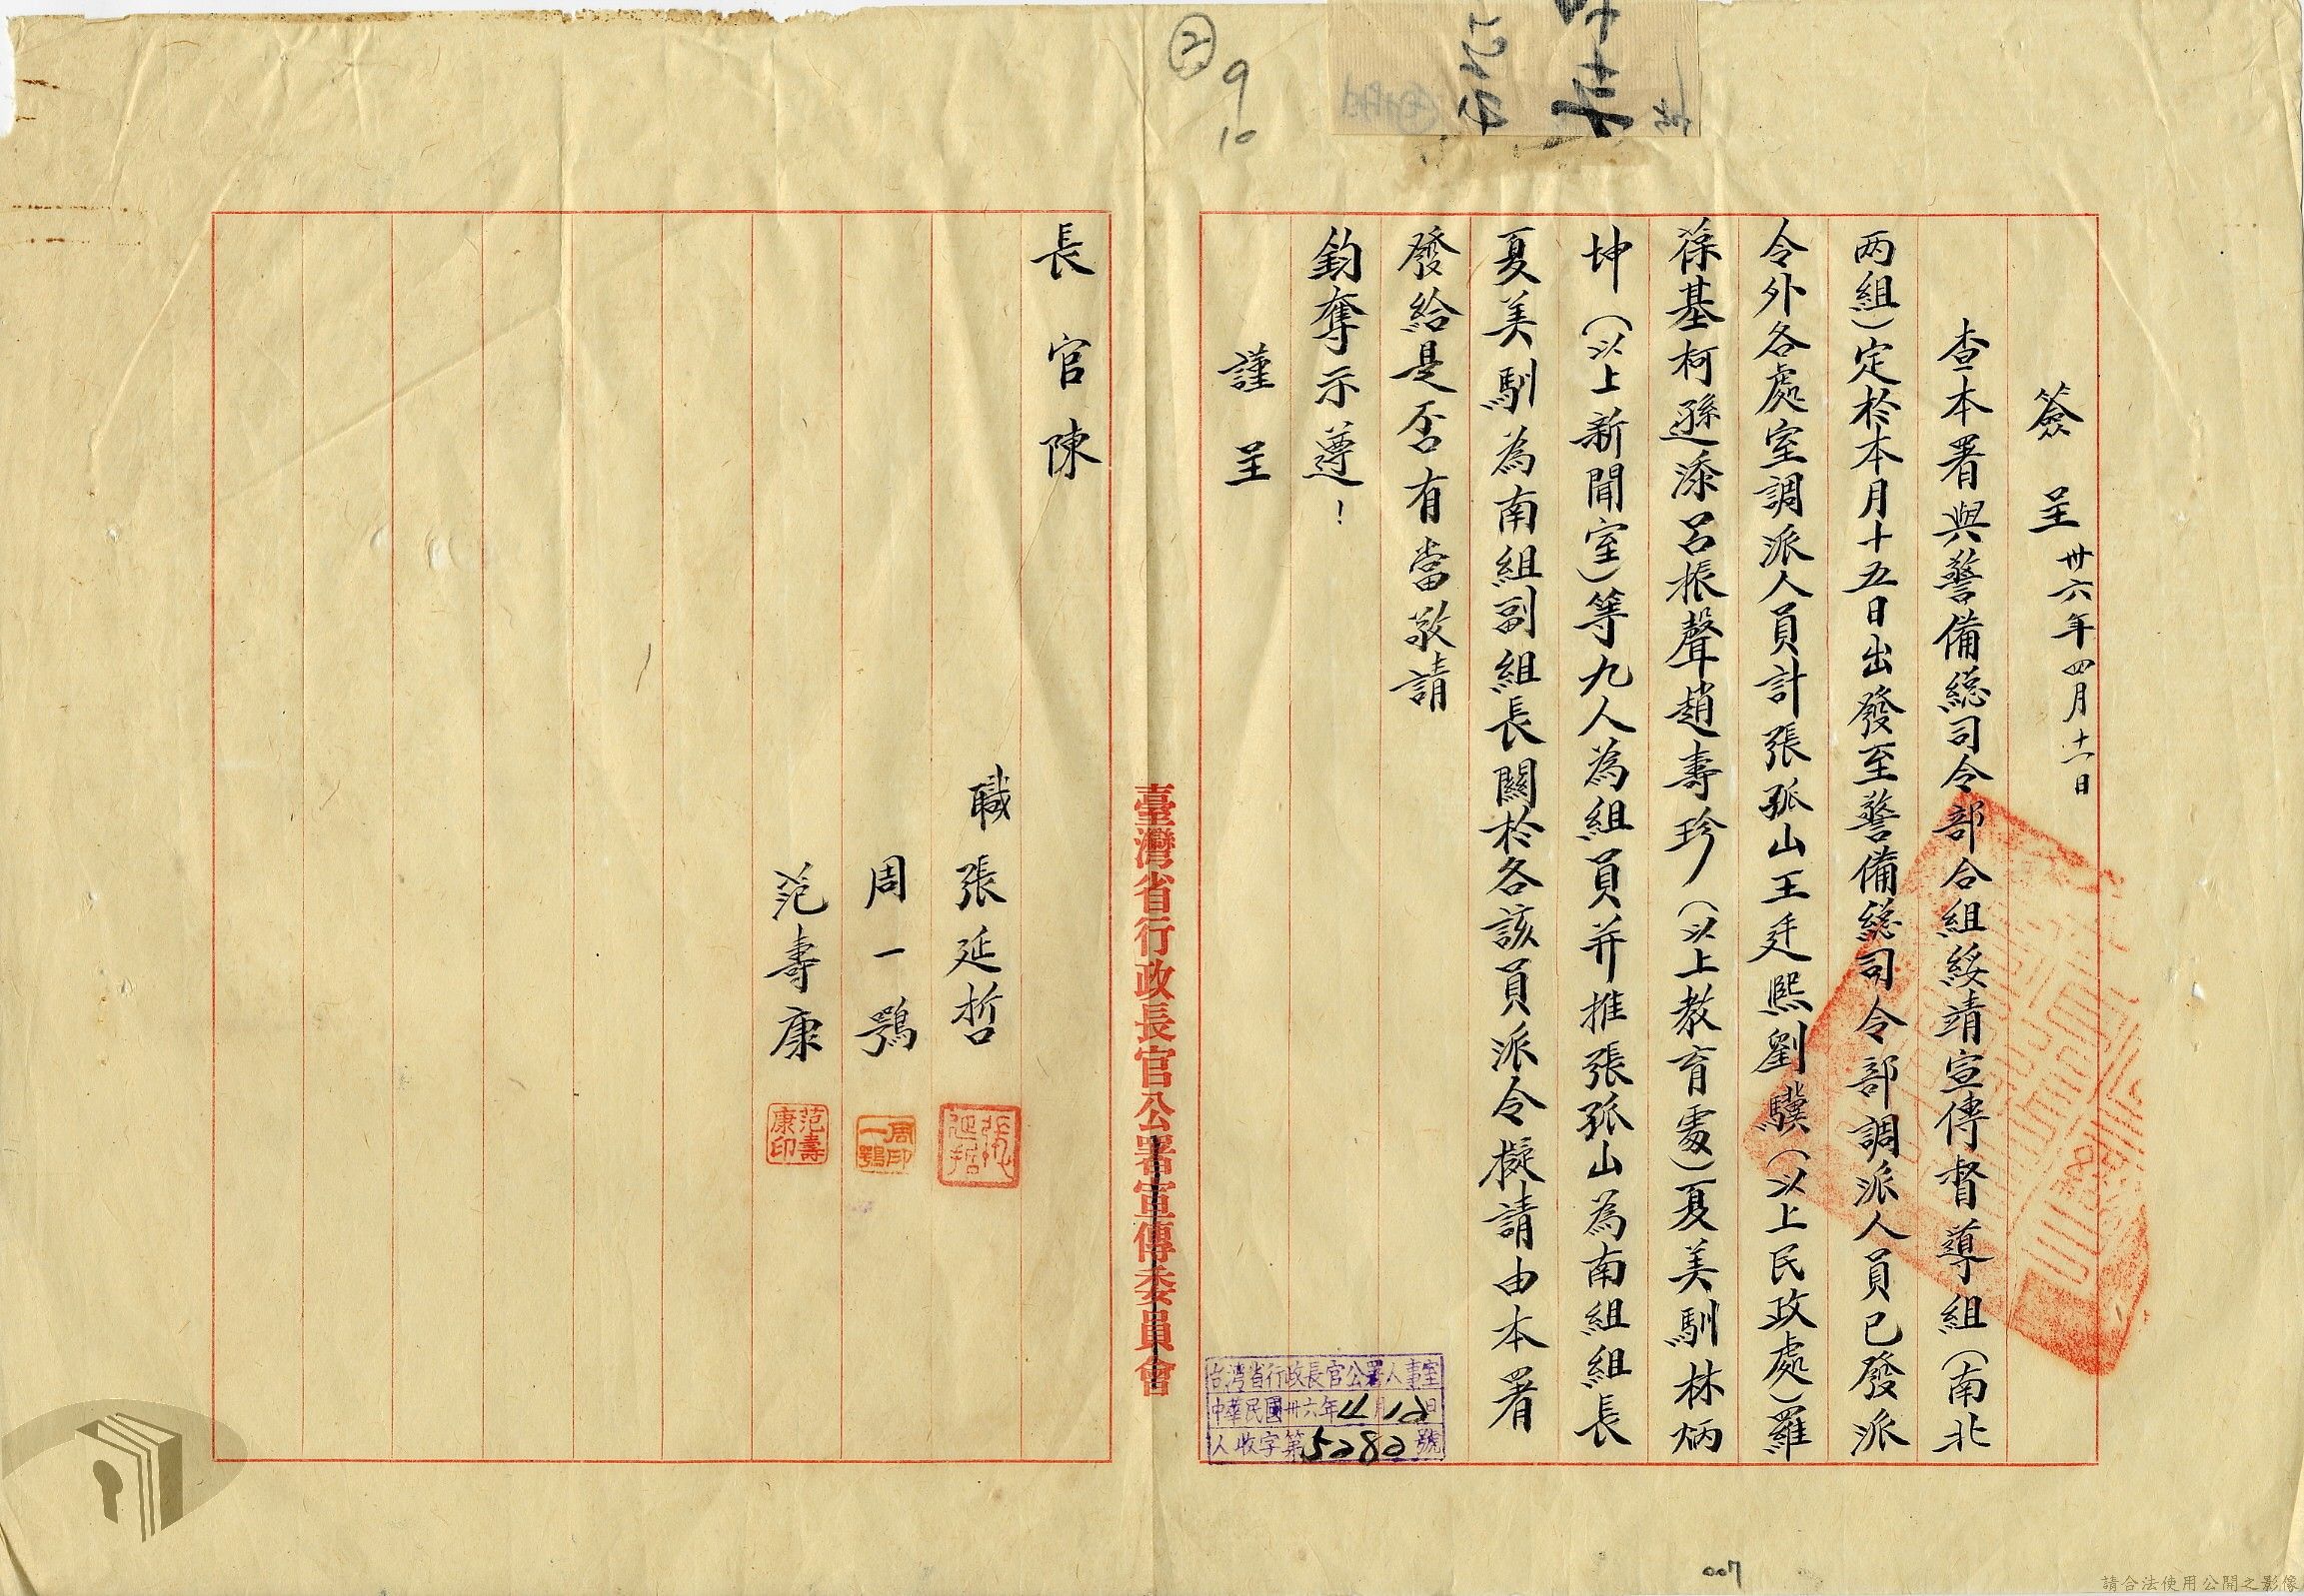 簽呈 卅六年四月十一日
查本署與警備總司令部合組綏靖宣傳督導組(南北
两組)定於本月十五日出發至警備總司令部調派人員已發派
令外各處室調派人員計張孤山王廷熙劉驥(以上民政處)羅
葆基柯遜添呂振聲趙壽珍(以上教育處)夏美馴林炳
坤(以上新聞室)等九人為組員并推張孤山為南組組長
夏美馴為南組副組長關於各該員派令擬請由本署
發給是否有當敬請
鈞奪示遵!
謹呈
長官陳
職張延哲
周一鶚
范壽康
張延哲
周一鶚印
范壽康印
臺灣省行政長官公署宣傳委員會
台灣省行政長官公署人事室
中華民國卅六年4月12日
人收字第5282號
② 9
10
007
請合法使用公開之影像